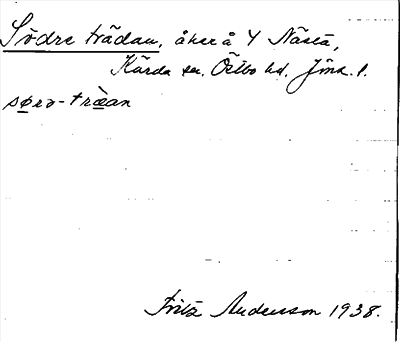 Södre trädan, åker å 4 Nästa,
Kärda sn. Östbo hd. Jönk. l.
sørə-træ̀an
Fritz Andersson 1938.